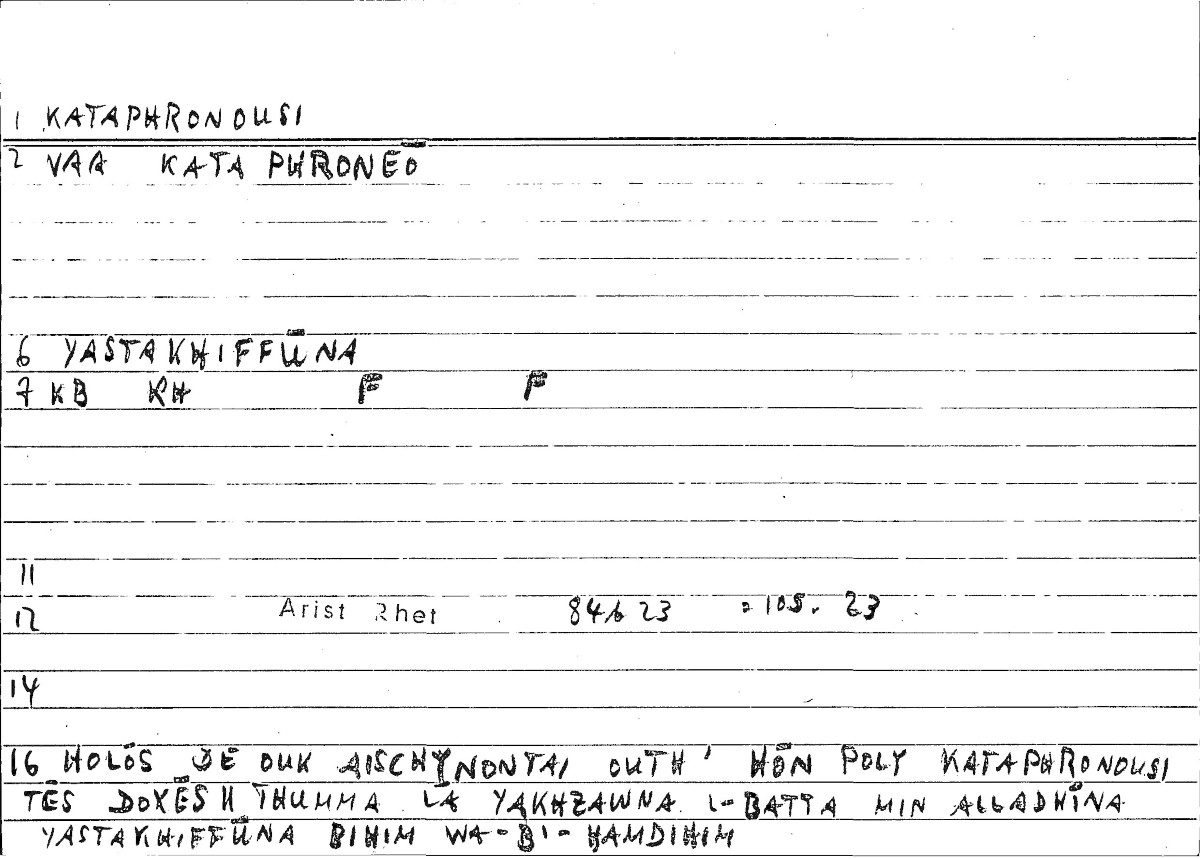 1 KATAPHRONOUSI
2 VAA KATA PHRONEŌ
6 YASTAKHIFFŪNA
7 KB KH F F
11
12 Arist Rhet 84b23 = 105. 23
14
16 HOLŌS DE OUK AISCHYNONTAI OUTH' HŌN POLY KATAPHRONOUSI
TĒS DOXĒS II THUMMA LĀ YAKHZAWNA L-BATTA MIN ALLADHĪNA
YASTAKHIFFŪNA BIHIM WA-BI-HAMDIHIM